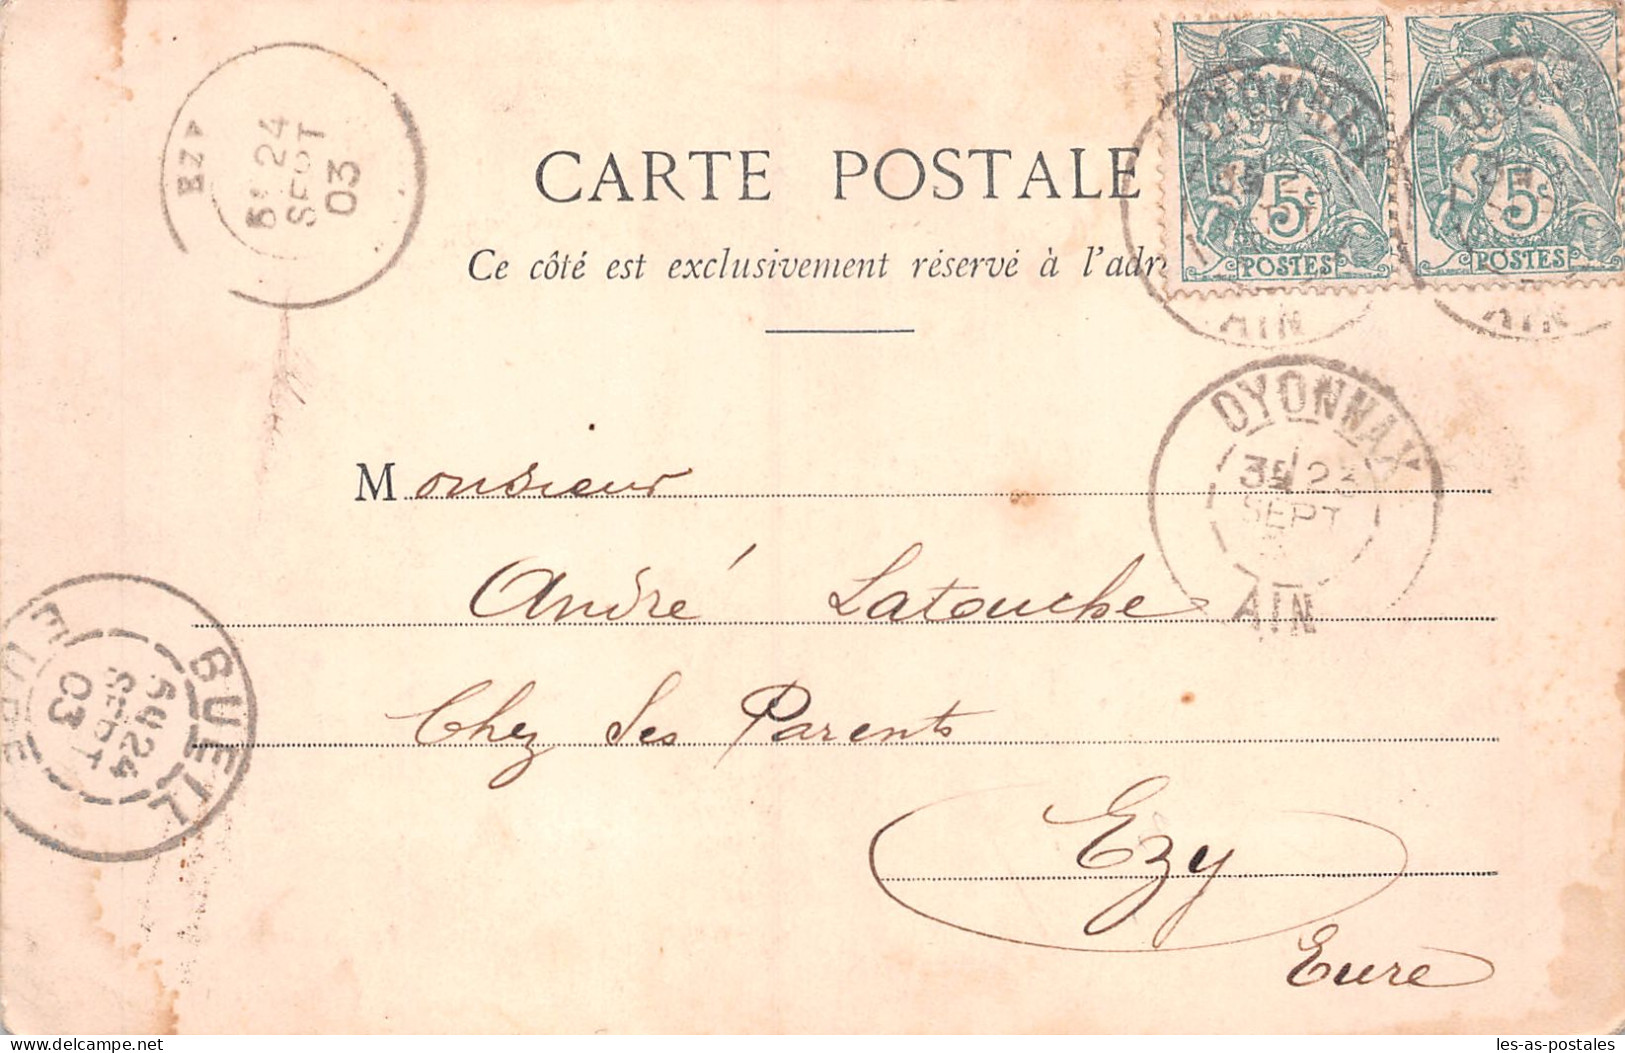 CARTE POSTALE
Ce côté est exclusivement réservé à l'adr
5c POSTES
5c POSTES
OYONNAX
AIN
OYO
AIN
EZY
5E 24
SEPT
03
OYONNAX
3E 23
SEPT
AIN
Monsieur
André Latouche
Chez Ses Parents
Ezy
Eure
BUEIL
5E 24
SEPT
03
EURE
delcampe.net
les-as-postales